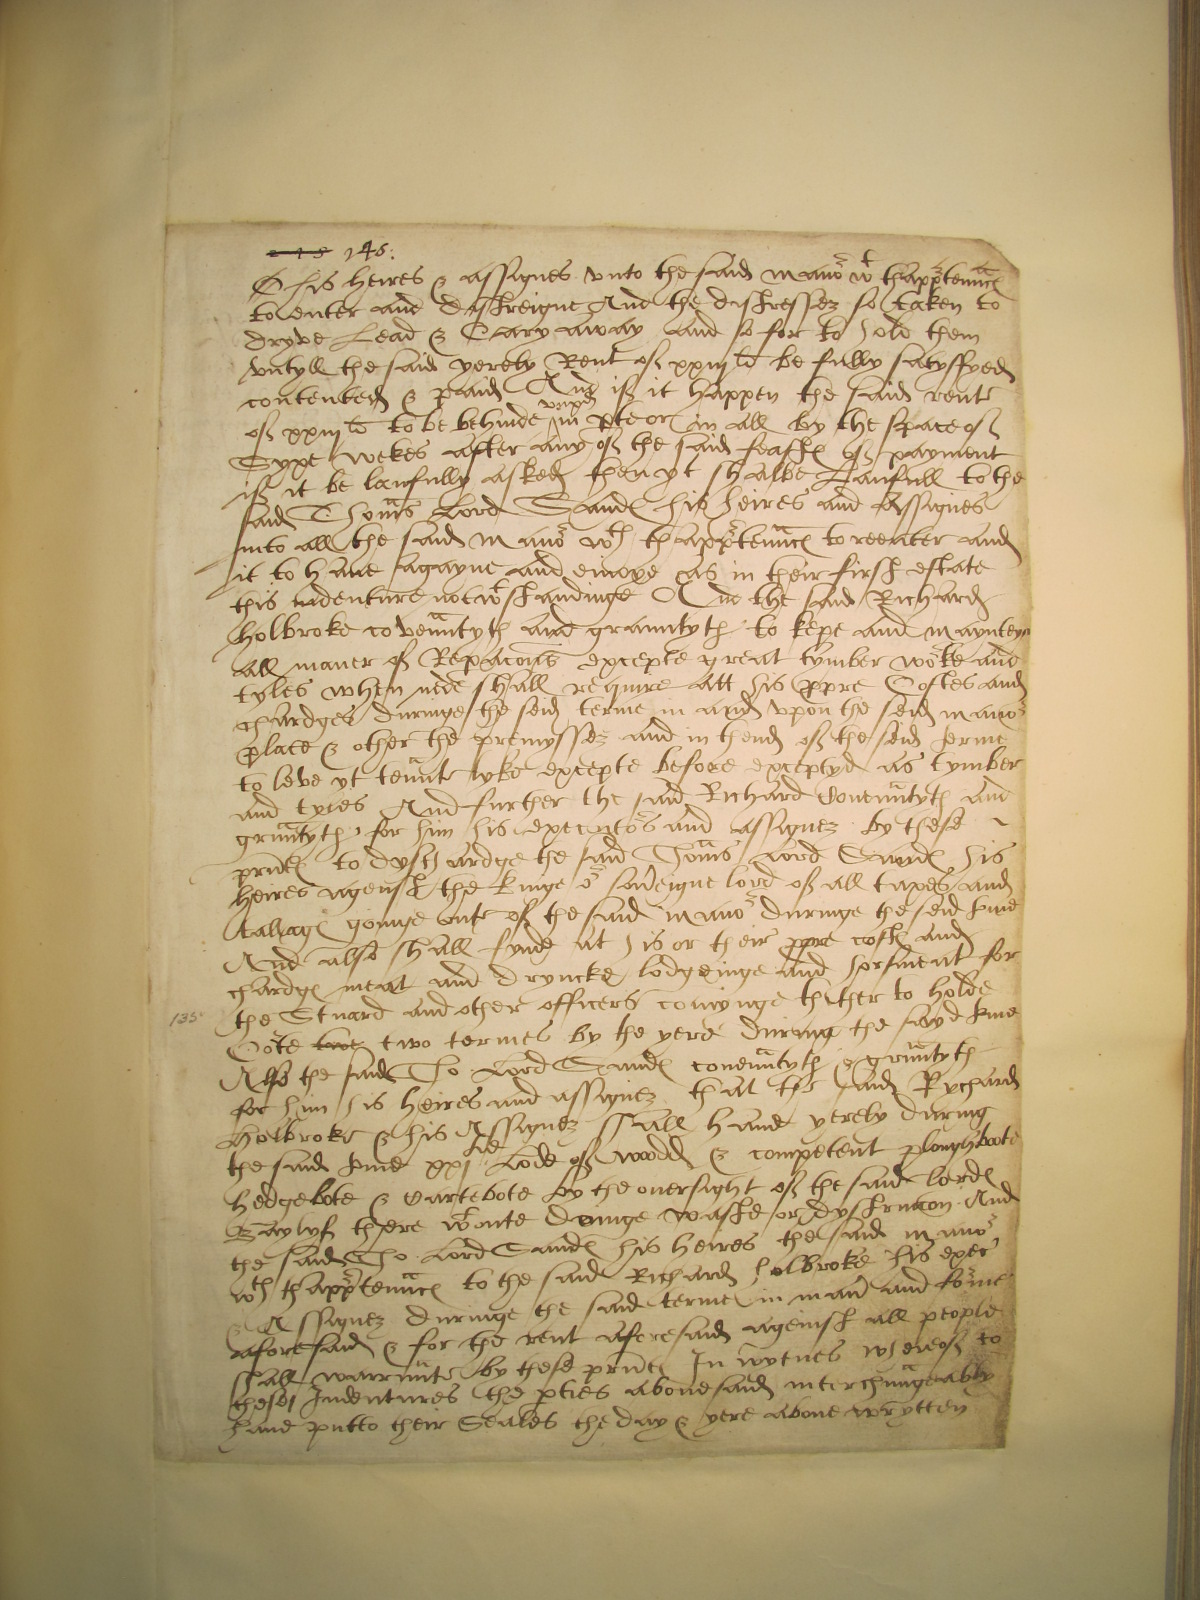 145.
& his heires & assignes unto the said mano' wt thapp'tenn'c
to enter and distreigne And the distressez so taken to
dryve Lead & Cary away and so for to hold them
untyll the said yerely Rent of xxiijli be fully satysfyed
contented & paid And if it happen the said rente
of xxiijli to be behinde unpd in pte or in all by the space of
Syxe wekes after any of the said feastes of payment
if it be laufully asked then yt shalbe Laufull to the
said Thom's Lord Sandes his heires and Assignes
into all the said mano' wth thapp'tenn'c to reenter and
it to have agayne and enioye as in their first estate
this indenture notwtstandinge And the said Richard
Holbroke coven'ntyth and graunntyth to kepe and maynteyn
all maner of Repac'ons excepte great tymber worke and
tyles when nede shall require att his ppre Costes and
chardges duringe the seid terme in and upon the seid mano'
place & other the premyssez and in thend of the seid terme
to leve yt ten'ntlyke excepte before exceptyd as tymber
and tyles And further the said Richard Coven'ntyth and
gr'nntyth for him his executo's and assignez by these
pr'nte to dyschardge the said Thom's Lord Sandes his
heires agenst the kinge o' sov'eigne lord of all taxes and
tallages goinge oute of the said mano' duringe the seid t'me
And also shall fynde at his or their ppre costes and
chardges meat and dryncke lodgeinge and horsmeat for
135
the Stuard and other officers comynge thither to holde
Co'te two termes by the yere during the sayd t'me
Also the said Tho. Lord Sandes coven'ntyth & gr'nntyth
for him his heires and assignez that the said Rychard
Holbroke & his Assignez shall have yerely during
the said t'me xxj tie Lode of wodd & competent ploughbote
hedgebote & Cartebote by the oversight of the said lordes
Baylyf there wtoute doinge waste or dystruccon And
the said Tho. Lord Sandes his heires the said mano'
wth thapp'tenn'c to the said Richard Holbroke his exec'
& Assignez duringe the said terme in man' and forme
aforesaid & for the rent aforesaid ageinst all people
shall warr'nte by these pr'nte In wytnes wherof to
these Indentures the pties abovesaid interchangeably
have putto their Seales the day & yere above wrytten